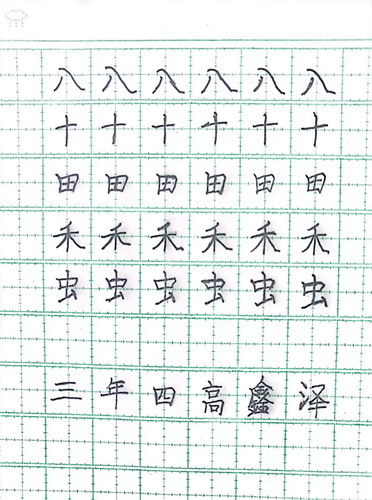 八八八八八八
十十十十十十
田田田田田田
禾禾禾禾禾禾
虫虫虫虫虫虫
三年四高鑫泽